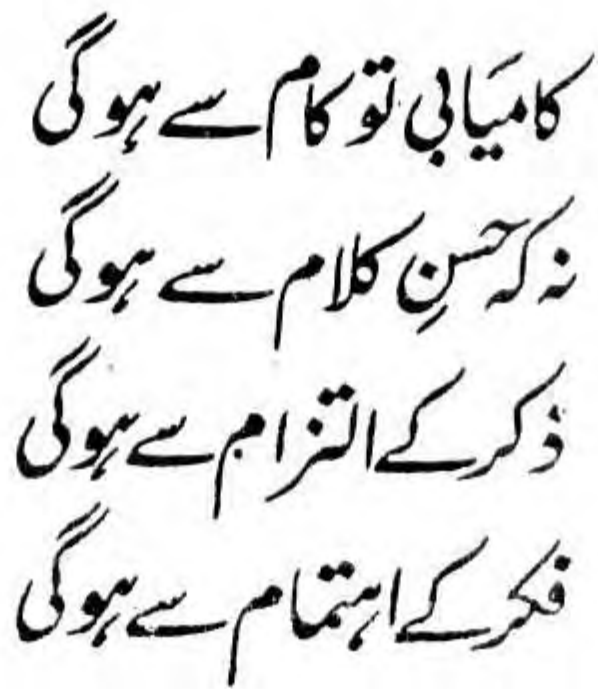 کامیَابی تو کام سے ہوگی
نہ کہ حسنِ کلام سے ہوگی
ذکر کے التزام سے ہوگی
فکر کے اہتمام سے ہوگی